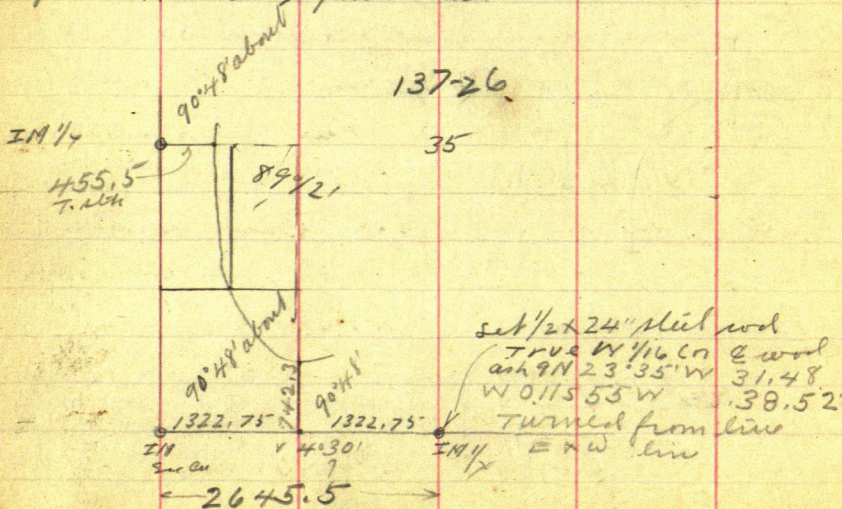 90°48' about
137-26
IM 1/4
35
455.5
89°21'
90°48' about
set 1/2 x 24" steel rod
True W 1/16 Cn & wood
ash 9 N 23°35' W 31.48
W 0.11 S 55 W .38.52
Turned from line
E x W line
742.3
90°48'
1322.75
1322.75
IM
V 4°30'
IM 1/4
2645.5